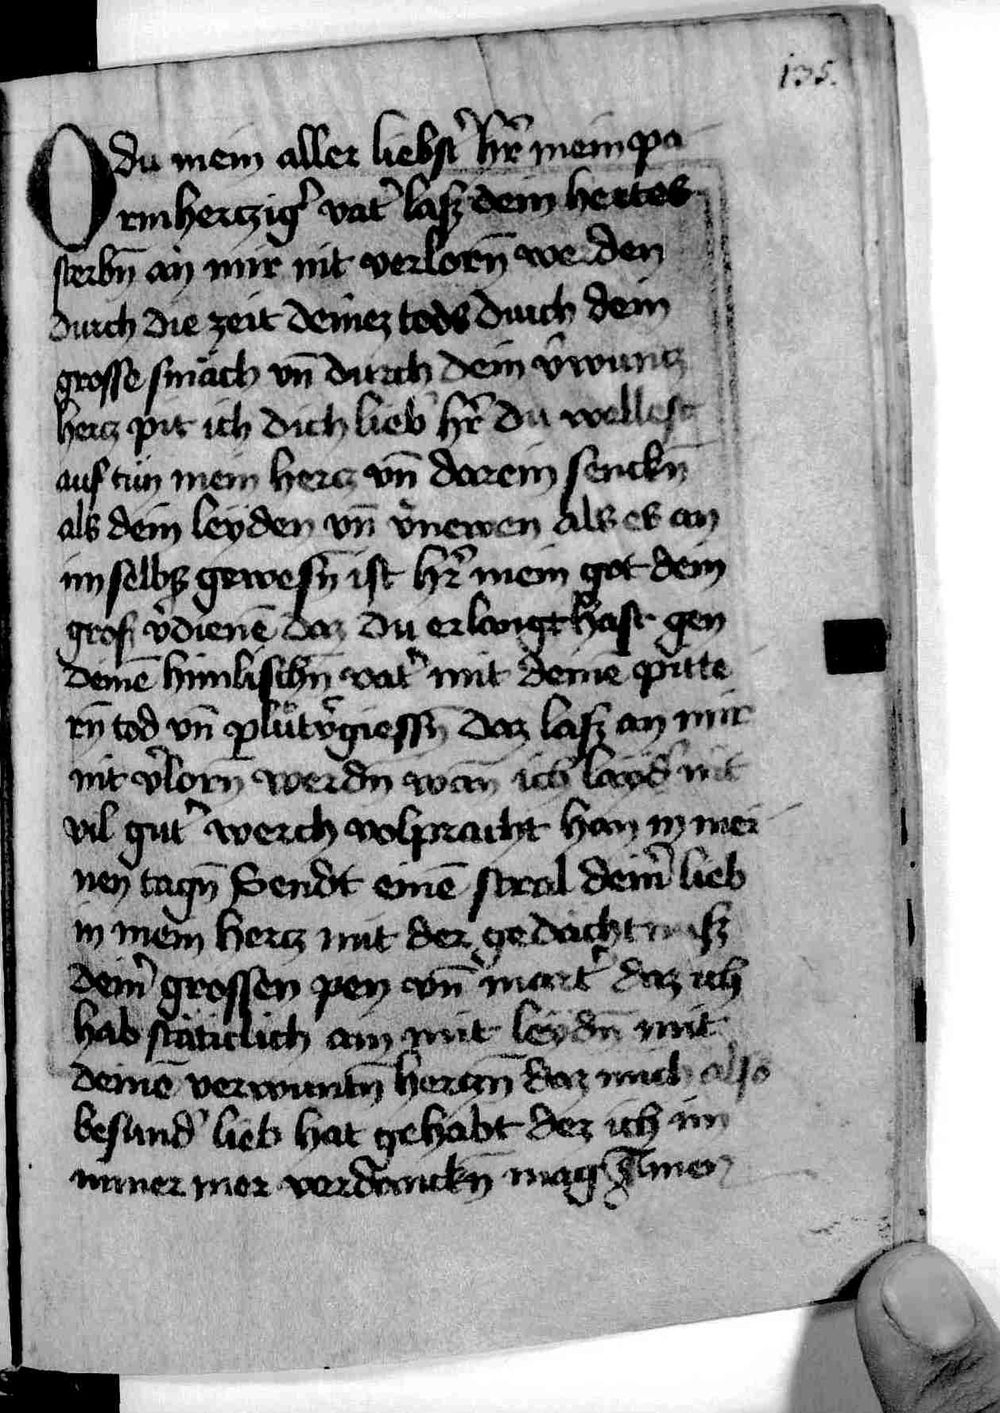 135.
O du mein aller liebst' hr̄ mein pa
rmhertzig' vat' lasz dein hertes
sterbn̄ an mir nit verlorn̄ werden
durch die zeit deinez tods durch dein
grosse smäch vn̄ durch dein v'wuntz
hertz pit ich dich lieb' hr̄ du wellest
auf tun mein hertz vn̄ darein senckn̄
als dein leyden vn̄ v'newen als es an
im selbs gewesn̄ ist hr̄ mein got dein
gros v'dienē daz du erlangt hast gen
deinē himlischn̄ vat' mit deinē pitte
rn̄ tod vn̄ plůtv'giessn̄ daz lasz an mir
nit v'lorn̄ werdn̄ wan̄ ich layd' nit
vil gut' werch volpracht han in mei
nen tagn̄ Sendt einē stral dein' lieb
in mein hertz mit der gedächtnusz
dein' grossen pen vn̄ mart' daz ich
hab stäticlich ain mit leydn̄ mit
deinē verwuntn̄ hertzn̄ daz mich also
besund' lieb hat gehabt dez ich im
mmer mer verdanckn̄ mag Amen